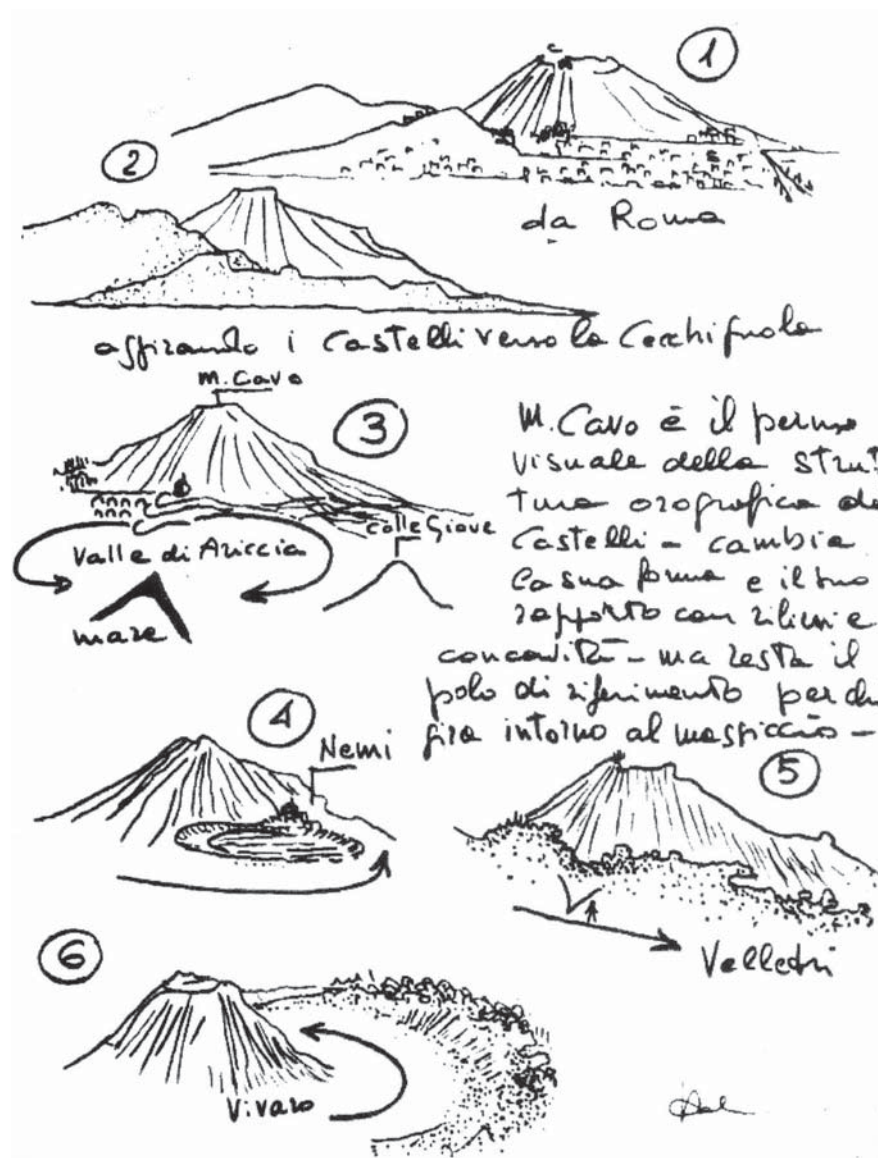 1
da Roma
2
aggirando i Castelli verso la Cecchignola
M. Cavo
3
colle Giove
Valle di Ariccia
mare
M. Cavo è il perno
visuale della strut
tura orografica de
Castelli - cambia
la sua forma e il suo
rapporto con rilievi e
concavità - ma resta il
polo di riferimento per chi
gira intorno al massiccio -
4
Nemi
5
Velletri
6
Vivaro